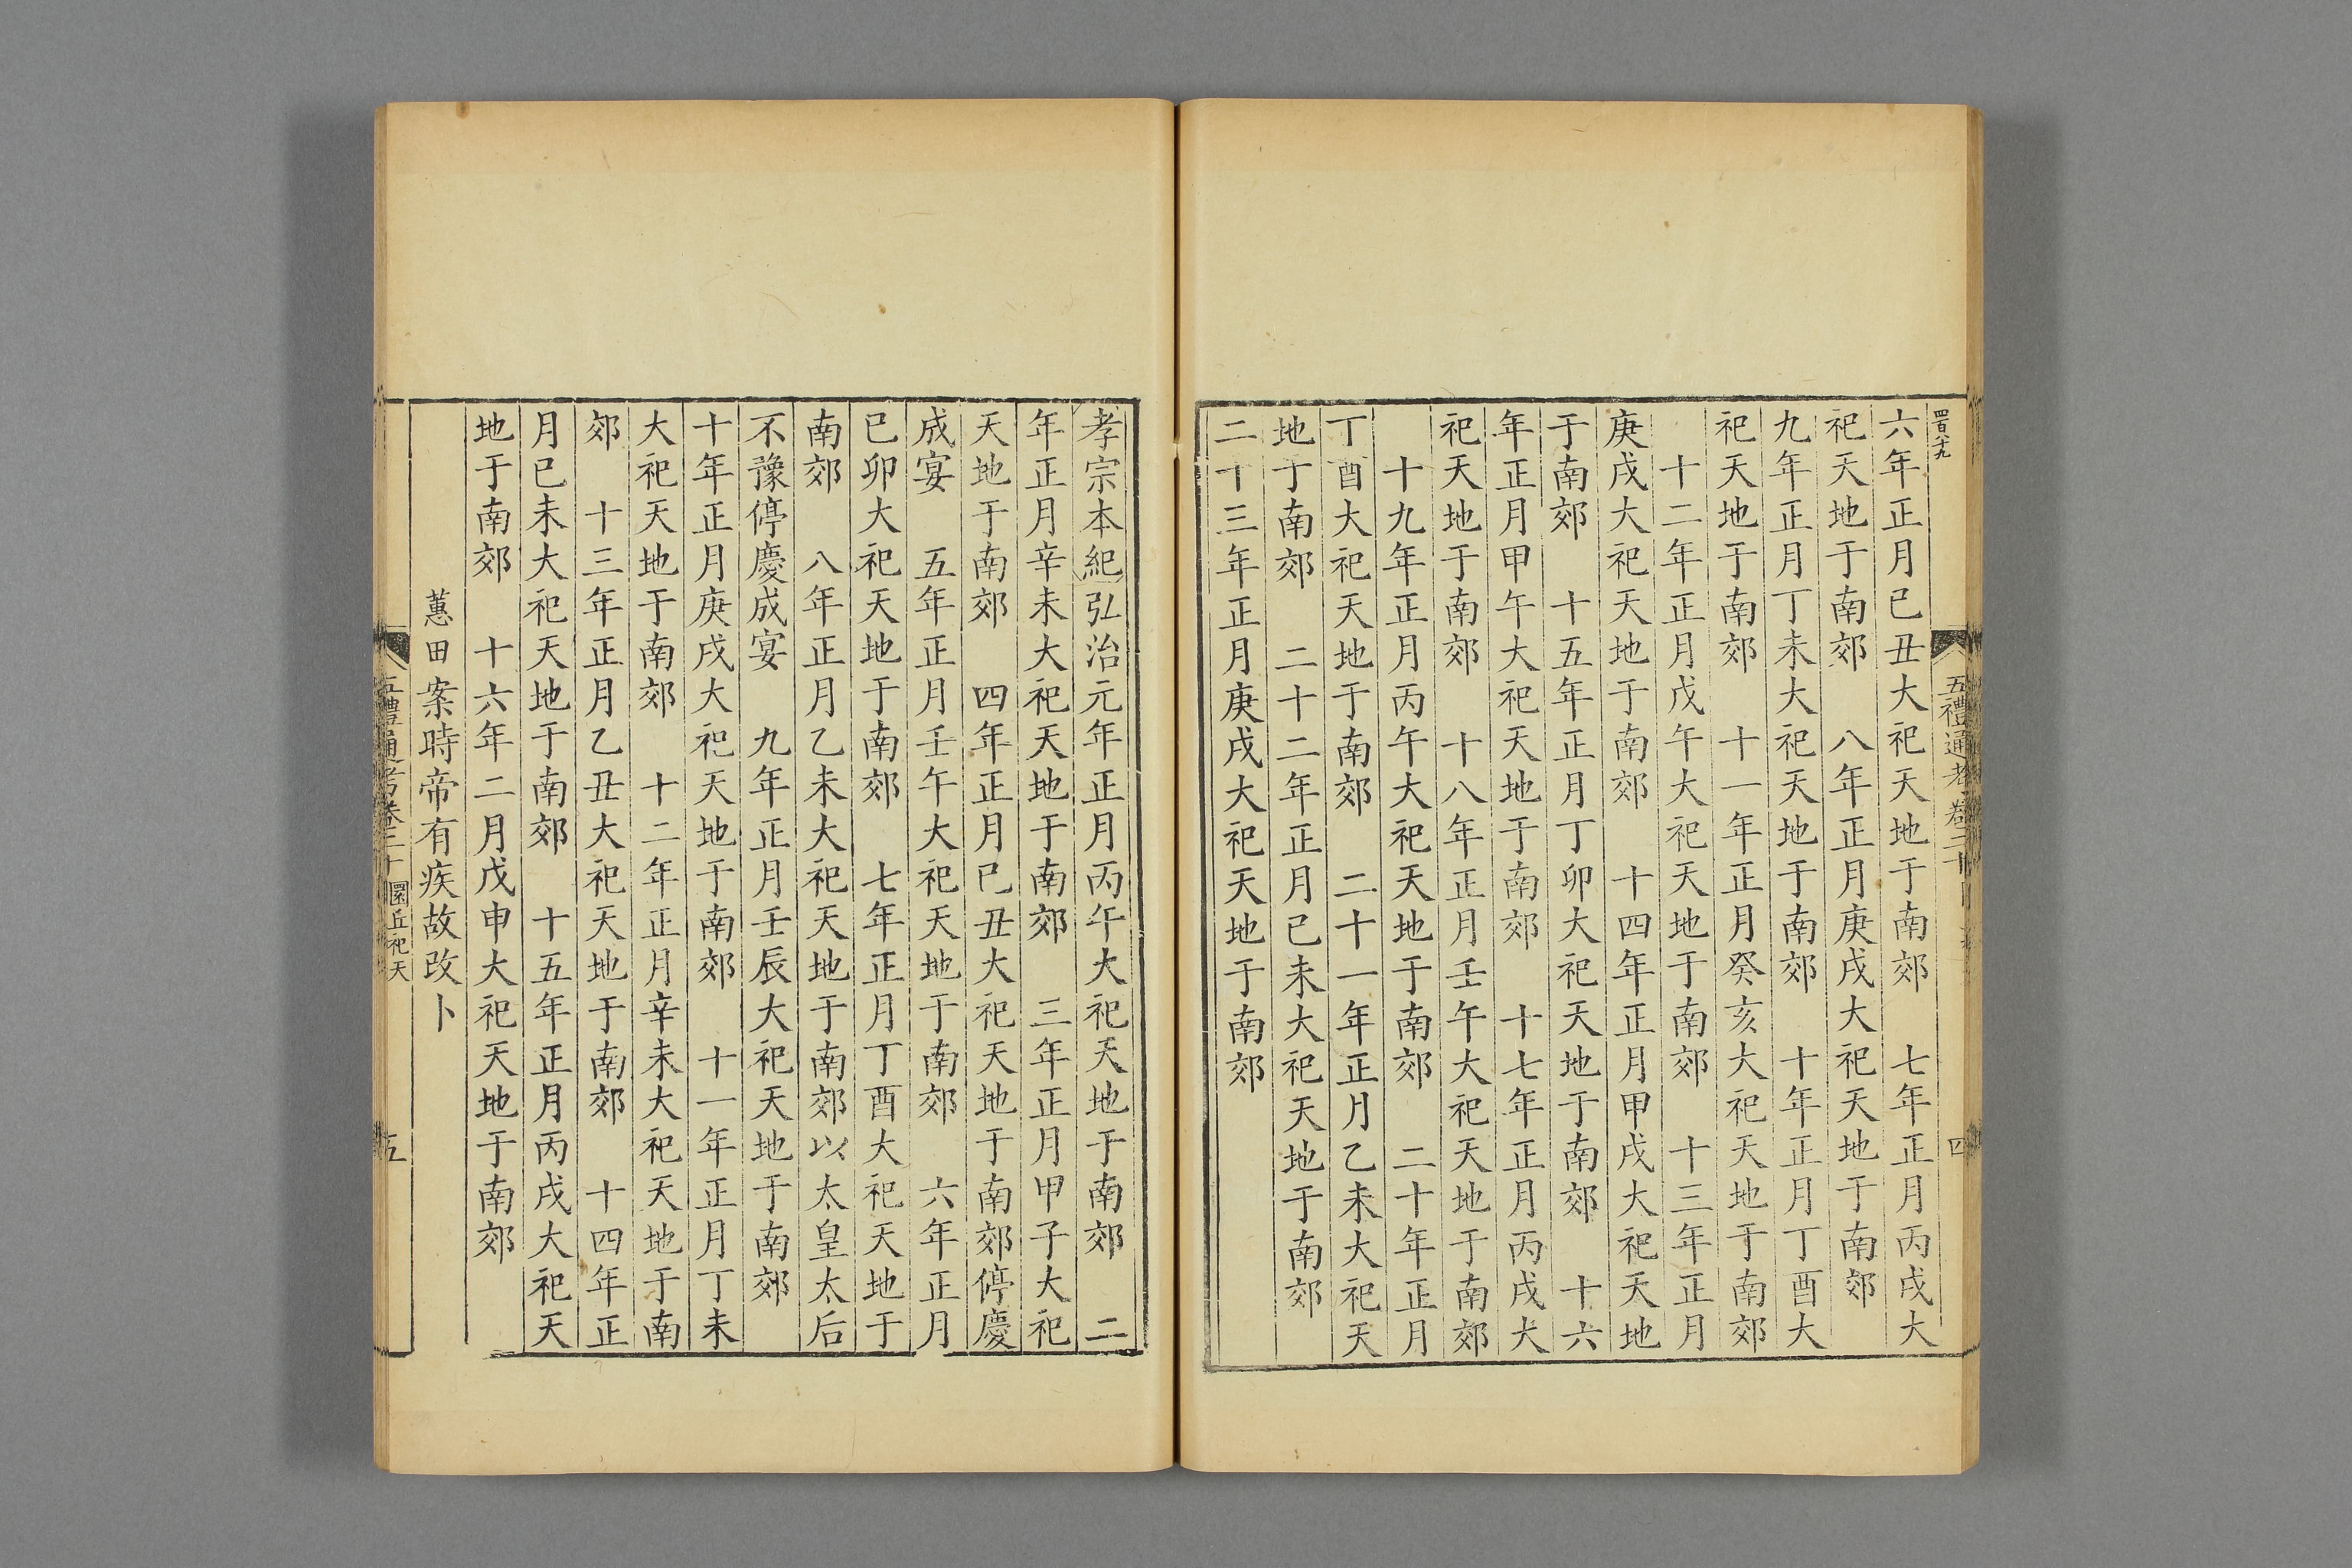 四百八十九
五禮通考卷二十
四
六年正月己丑大祀天地于南郊　七年正月丙戌大
祀天地于南郊　八年正月庚戌大祀天地于南郊
九年正月丁未大祀天地于南郊　十年正月丁酉大
祀天地于南郊　十一年正月癸亥大祀天地于南郊
　十二年正月戊午大祀天地于南郊　十三年正月
庚戌大祀天地于南郊　十四年正月甲戌大祀天地
于南郊　十五年正月丁卯大祀天地于南郊　十六
年正月甲午大祀天地于南郊　十七年正月丙戌大
祀天地于南郊　十八年正月壬午大祀天地于南郊
　十九年正月丙午大祀天地于南郊　二十年正月
丁酉大祀天地于南郊　二十一年正月乙未大祀天
地于南郊　二十二年正月己未大祀天地于南郊
二十三年正月庚戌大祀天地于南郊
孝宗本紀弘治元年正月丙午大祀天地于南郊　二
年正月辛未大祀天地于南郊　三年正月甲子大祀
天地于南郊　四年正月己丑大祀天地于南郊停慶
成宴　五年正月壬午大祀天地于南郊　六年正月
己卯大祀天地于南郊　七年正月丁酉大祀天地于
南郊　八年正月乙未大祀天地于南郊以太皇太后
不豫停慶成宴　九年正月壬辰大祀天地于南郊
十年正月庚戌大祀天地于南郊　十一年正月丁未
大祀天地于南郊　十二年正月辛未大祀天地于南
郊　十三年正月乙丑大祀天地于南郊　十四年正
月己未大祀天地于南郊　十五年正月丙戌大祀天
地于南郊　十六年二月戊申大祀天地于南郊
蕙田案時帝有疾故改卜
五禮通考卷二十　圜丘祀天
五